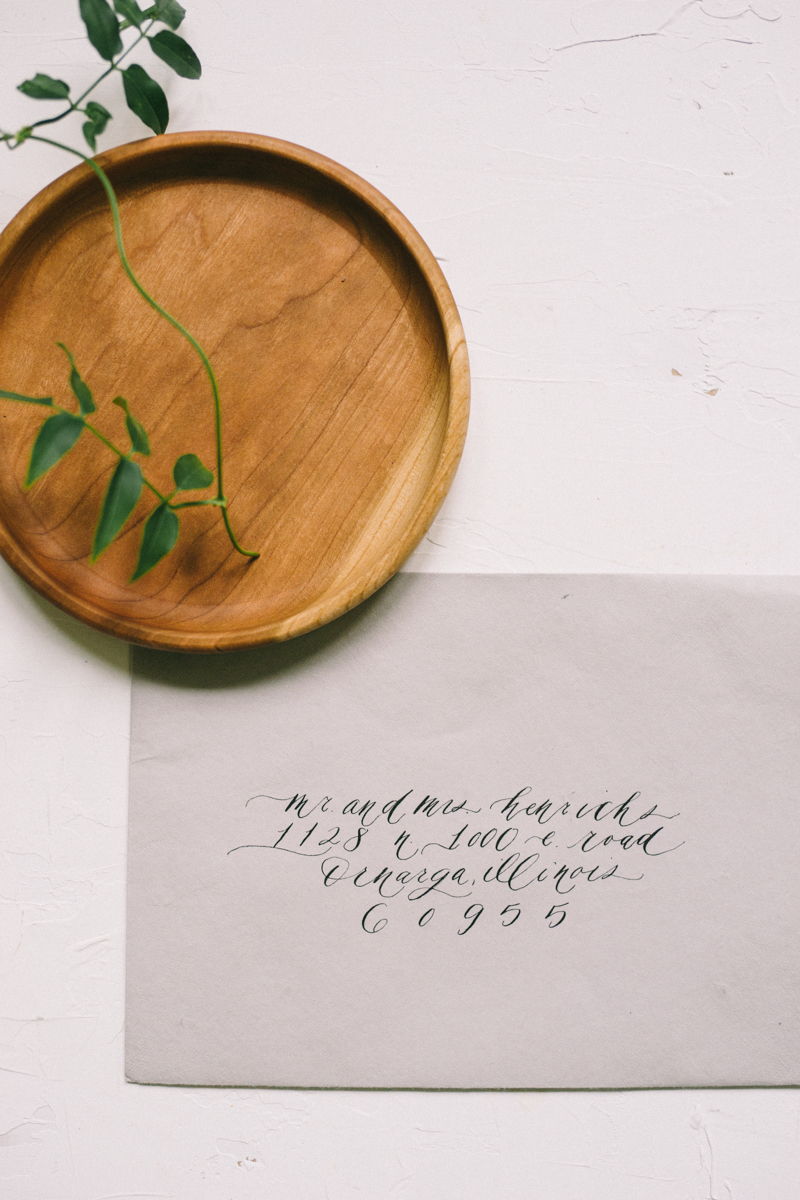 mr. and mrs. henrichs
1128 n. 1000 e. road
Ornarga, illinois
60955